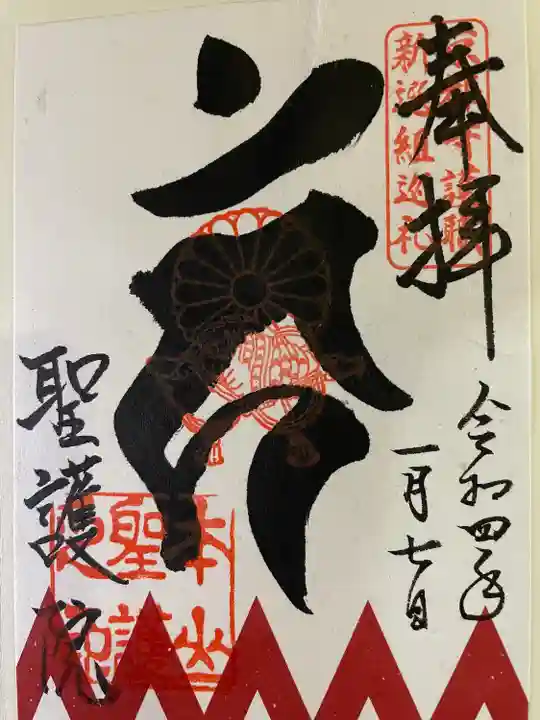 奉拝
令和四年
一月七日
新選組巡礼
聖護院
本山
聖護